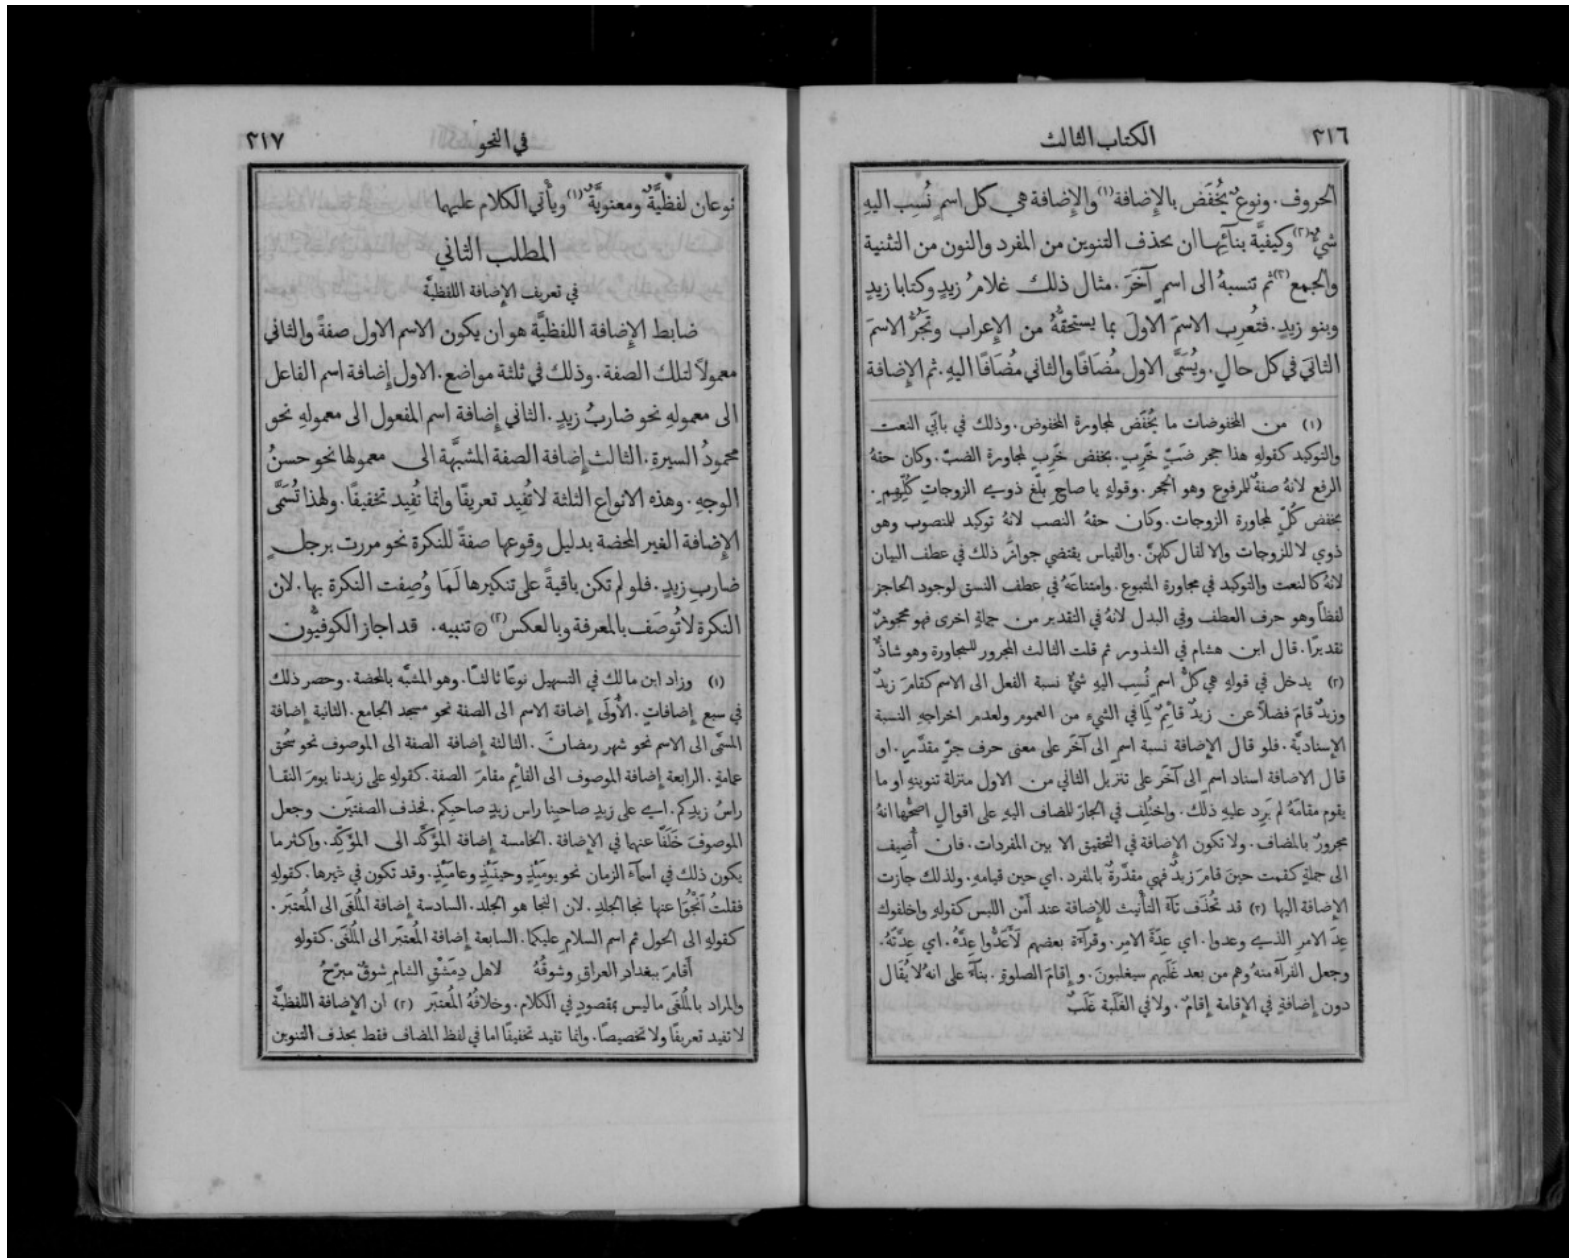 ٢١٦
الكتاب الثالث
الحروف. ونوعٌ يُخْفَض بالإِضافة (١) والإِضافة هي كل اسمٍ نُسِب اليهِ
شيءٌ (٢) وكيفيَّة بنائِها ان بحذف التنوين من المفرد والنون من التثنية
والجمع (٣) ثم تنسبهُ الى اسمٍ آخَرَ. مثال ذلك غلامُ زيدٍ وكتابا زيدٍ
وبنو زيدٍ. فتُعرِب الاسمَ الاولَ بما يستحقُّهُ من الإعراب وتَجُرُّ الاسمَ
الثانيَ في كل حالٍ. ويُسَمَّى الاول مُضَافًا والثاني مُضَافًا اليهِ. ثم الإضافة
(١) من المخفوضات ما يُخْفَض لمجاورة المخفوض. وذلك في بابَي النعت
والتوكيد كقولهِ هذا حجر ضَبٍّ خَرِبٍ. بخفض خَرِبٍ لمجاورة الضبّ. وكان حقهُ
الرفع لانهُ صفةٌ للمرفوع وهو الحجر. وقولهِ يا صاحِ بلّغ ذوي الزوجاتِ كُلِّهِمِ.
بخفض كُلٍّ لمجاورة الزوجات. وكان حقهُ النصب لانهُ توكيد للمنصوب وهو
ذوي لا للزوجات والا لقال كلهنَّ. والقياس يقتضي جوازَ ذلك في عطف البيان
لانهُ كالنعت والتوكيد في مجاورة المتبوع. وامتناعَهُ في عطف النسق لوجود الحاجز
لفظًا وهو حرف العطف وفي البدل لانهُ في التقدير من جملةٍ اخرى فهو محجوزٌ
تقديرًا. قال ابن هشام في الشذور ثم قلت الثالث المجرور للمجاورة وهو شاذٌّ
(٢) يدخل في قولهِ هي كلُّ اسمٍ نُسِب اليهِ شيءٌ نسبة الفعل الى الاسم كقامَ زيدٌ
وزيدٌ قامَ فضلاً عن زيدٌ قائِمٌ لِمَا في الشيء من العموم ولعدم اخراجهِ النسبة
الإسناديَّة. فلو قال الإضافة نسبة اسمٍ الى آخَر على معنى حرف جرٍّ مقدَّرٍ. او
قال الاضافة اسناد اسمٍ الى آخَر على تنزيل الثاني من الاول منزلة تنوينهِ او ما
يقوم مقامَهُ لم يَرِد عليهِ ذلك. واختُلِف في الجارّ للمضاف اليهِ على اقوالٍ اصحُّها انهُ
مجرورٌ بالمضاف. ولا تكون الإضافة في التحقيق الا بين المفردات. فان أُضِيف
الى جملةٍ كقمت حينَ قامَ زيدٌ فهي مقدَّرةٌ بالمفرد. اي حين قيامهِ. ولذلك جازت
الإضافة اليها (٣) قد تُحذَف تآءُ التأنيث للإضافة عند أَمْن اللبس كقولهِ واخلفوك
عِدَ الامرِ الذي وعدوا. اي عِدَةَ الامرِ. وقرآءَة بعضهم لَأَعَدُّوا عِدَّهُ. اي عِدَّتَهُ.
وجعل الفرآءُ منهُ وهم من بعد غَلَبِهم سيغلبون. وإِقامَ الصلوةِ. بنآءً على انهُ لا يُقَال
دون إضافةٍ في الإقامة إقامٌ. ولا في الغَلَبة غَلَبٌ
في النحو
٢١٧
نوعان لفظيَّةٌ ومعنويَّةٌ (١) ويأْتي الكلام عليها
المطلب الثاني
في تعريف الإضافة اللفظيَّة
ضابط الإِضافة اللفظيَّة هو ان يكون الاسم الاول صفةً والثاني
معمولاً لتلك الصفة. وذلك في ثلثة مواضع. الاول إضافة اسم الفاعل
الى معمولهِ نحو ضاربُ زيدٍ. الثاني إضافة اسم المفعول الى معمولهِ نحو
محمودُ السيرةِ. الثالث إضافة الصفة المشبَّهة الى معمولها نحو حسنُ
الوجهِ. وهذه الانواع الثلثة لا تُفِيد تعريفًا وانما تُفِيد تخفيفًا. ولهذا تُسَمَّى
الإضافة الغير المحضة بدليل وقوعها صفةً للنكرة نحو مررت برجلٍ
ضاربِ زيدٍ. فلو لم تكن باقيةً على تنكيرها لَمَا وُصِفت النكرة بها. لان
النكرة لا تُوصَف بالمعرفة وبالعكس (٢) ۞ تنبيه. قد اجاز الكوفيُّون
(١) وزاد ابن مالك في التسهيل نوعًا ثالثًا. وهو المشبَّه بالمحضة. وحصر ذلك
في سبع إضافاتٍ. الأُولَى إضافة الاسم الى الصفة نحو مسجد الجامع. الثانية إضافة
المسمَّى الى الاسم نحو شهر رمضانَ. الثالثة إضافة الصفة الى الموصوف نحو سُحق
عمامةٍ. الرابعة إضافة الموصوف الى القائِم مقامَ الصفة. كقولهِ على زيدنا يومَ النقا
راسُ زيدِكم. اي على زيدٍ صاحبِنا راس زيدٍ صاحبِكم. فحذف الصفتين وجعل
الموصوفَ خَلَفًا عنها في الإضافة. الخامسة إضافة المؤَكَّد الى المؤَكِّد. واكثر ما
يكون ذلك في اسمآء الزمان نحو يومَئِذٍ وحينَئِذٍ وعامَئِذٍ. وقد تكون في غيرها. كقولهِ
فقلتُ ٱنجُوَا عنها نجا الجلدِ. لان النجا هو الجلد. السادسة إضافة المُلغَى الى المُعتبَر.
كقولهِ الى الحول ثم اسم السلامِ عليكما. السابعة إضافة المُعتبَر الى المُلغَى. كقولهِ
أقامَ ببغدادِ العراقِ وشوقُهُ لاهل دِمَشْقِ الشامِ شوقٌ مبرّحُ
والمراد بالمُلغَى ما ليس بمقصودٍ في الكلام. وخلافُهُ المُعتبَر (٢) ان الإضافة اللفظيَّة
لا تفيد تعريفًا ولا تخصيصًا. وانما تفيد تخفيفًا اما في لفظ المضاف فقط بحذف التنوين